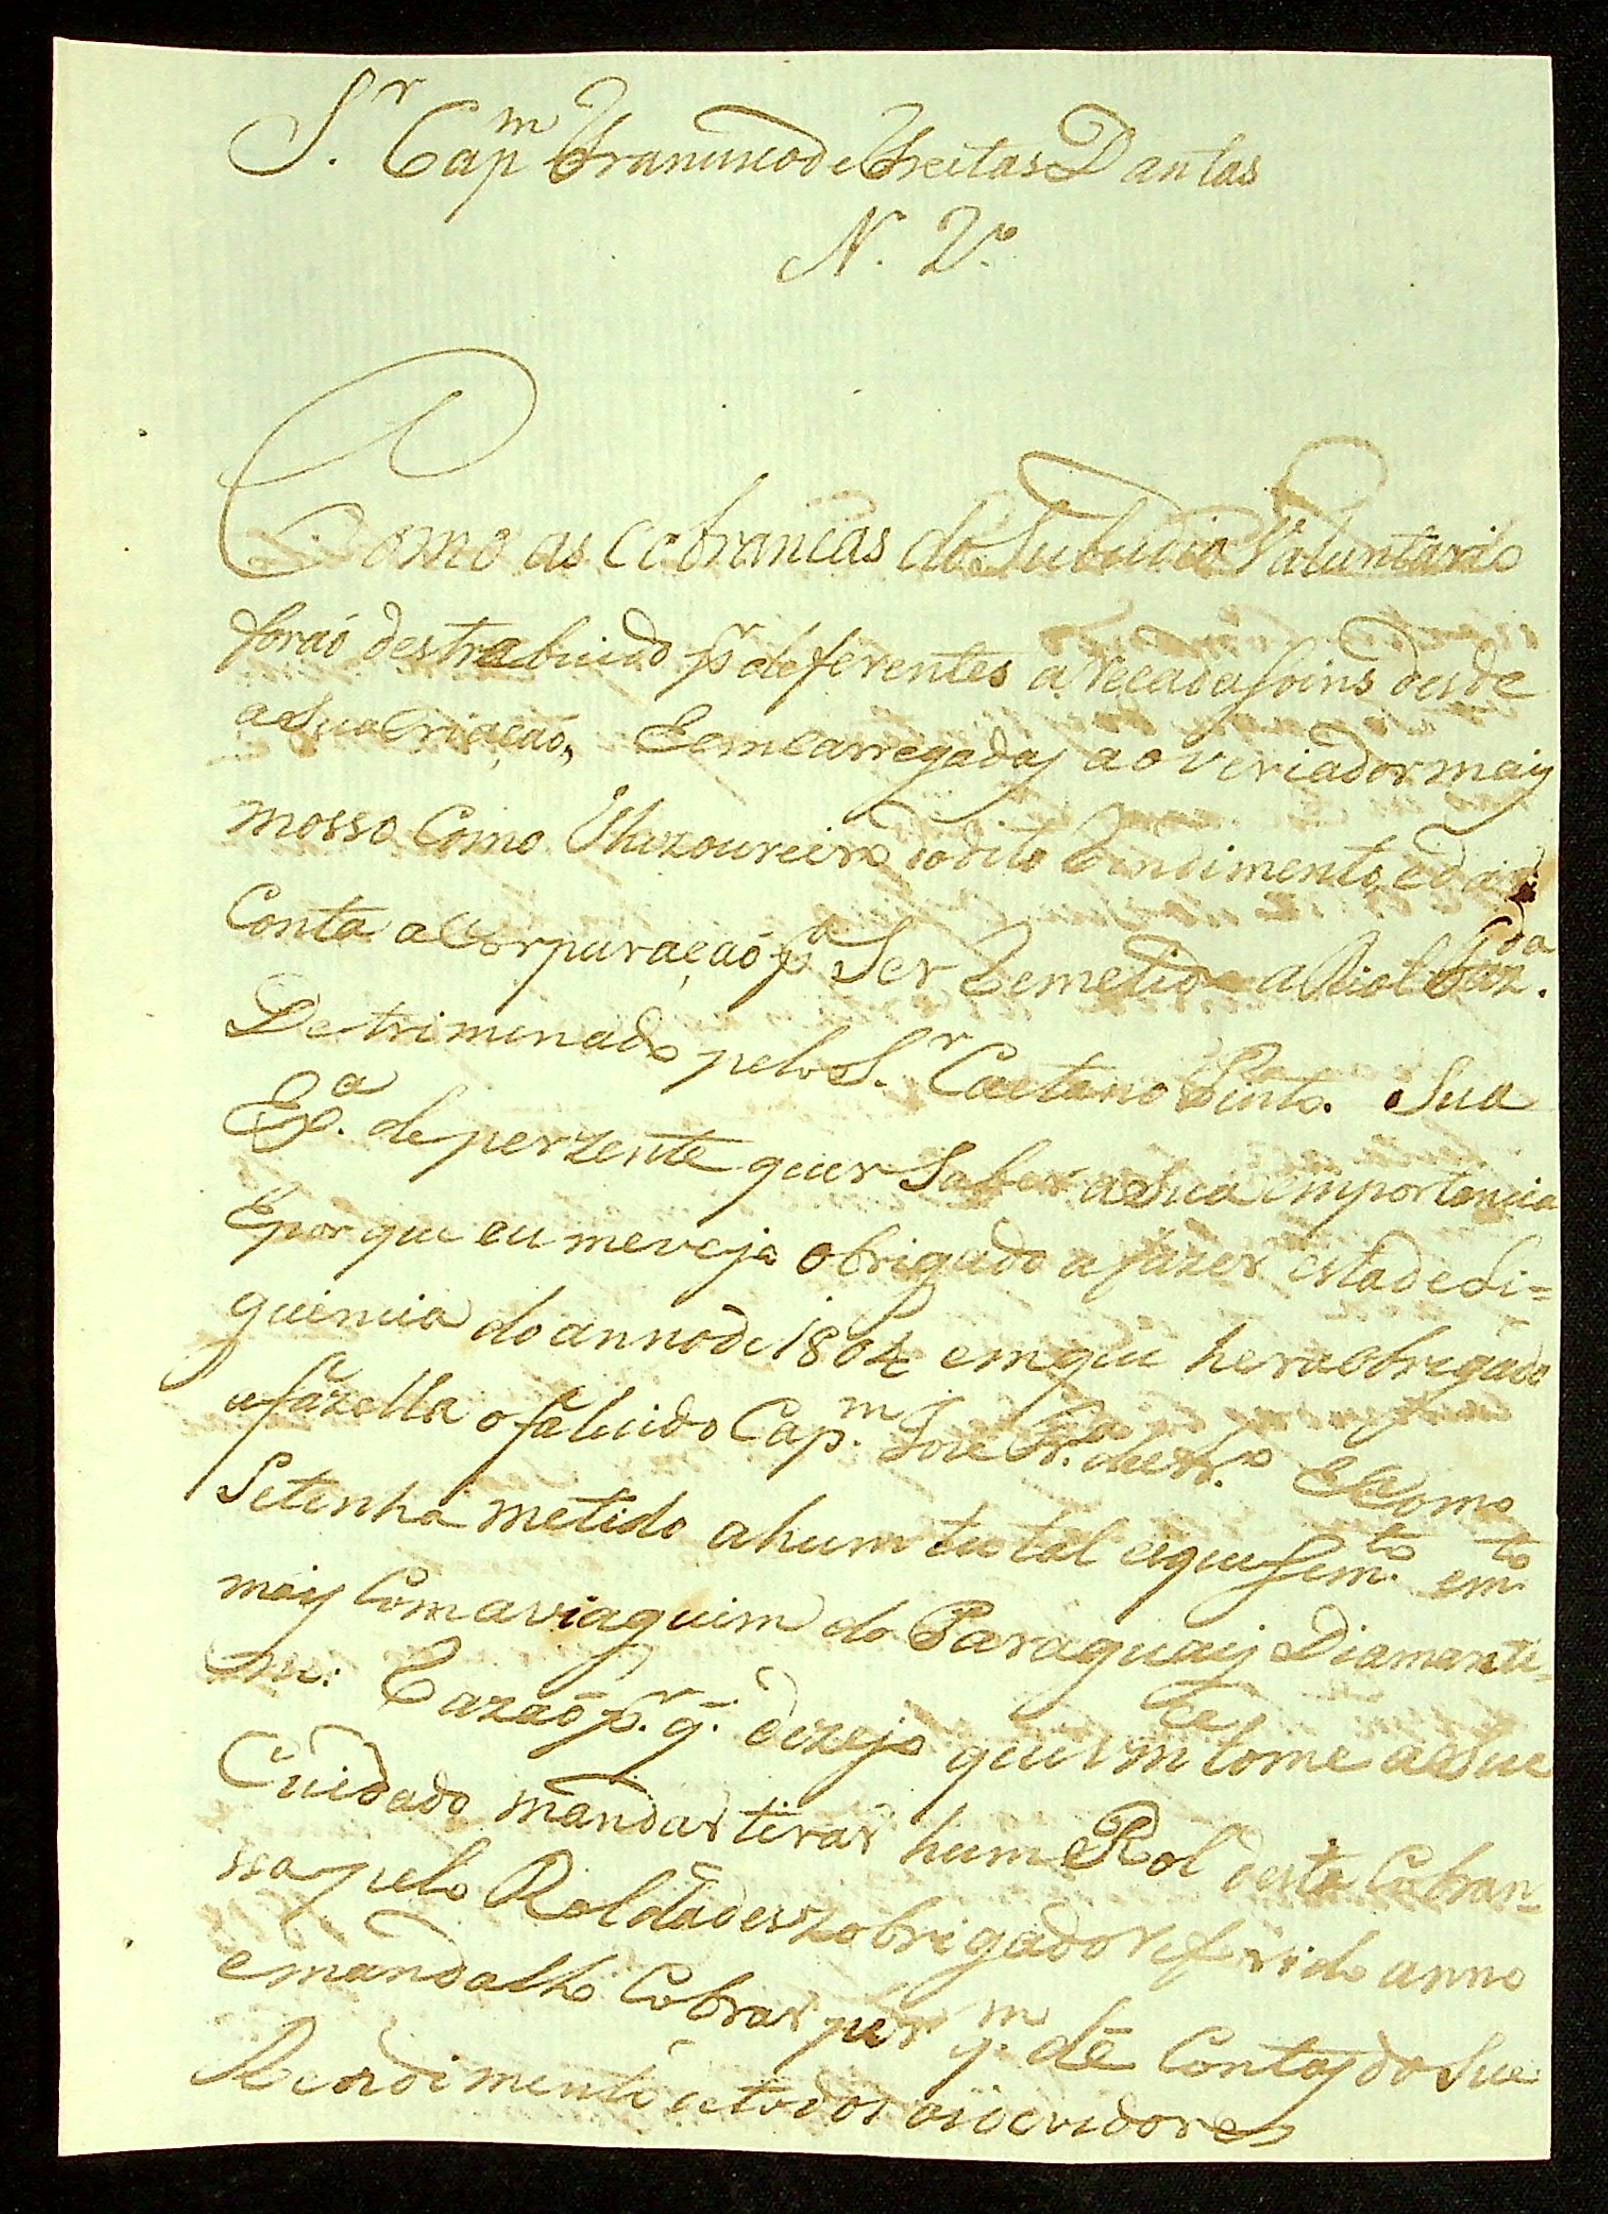 Sr. Capm Francisco de Freitas Dantas
N. 2º
Como as Cobrancas do Subcidio Valuntario
foraó destrebuido pr deferentes arecadasoins desde
a Sua Criaçaó, Eemcarregadas ao veriador mais
mosso Como Thizoureiro do dito Rendimento, e dár
Conta a Corpuraçaó pa Ser Remetido a Rial Fazda.
Detriminado pelo Sr. Caetano Pinto. Sua
Exa. de perzente quer Saber a Sua emportancia
E por que eu me vejo obrigado a fazer esta deLi=
guencia do anno de 1804 em que hera obrigado
a fazella o falicido Capm. Joze Ecomo
Setenha metido a hum tutal aquesimto. emto
mais Com a viaguim do Paraguay Diamanti=
no: Razaõ pr. q̃. dezejo que vmce tome a Seu
Cuidado mandar tirar hum Rol desta Cobran=
ssa pelo Rol da dezobriga do referido anno
e mandallo Cobrar por qm. dê Contas do Seu
Rendimento e todos os devidores